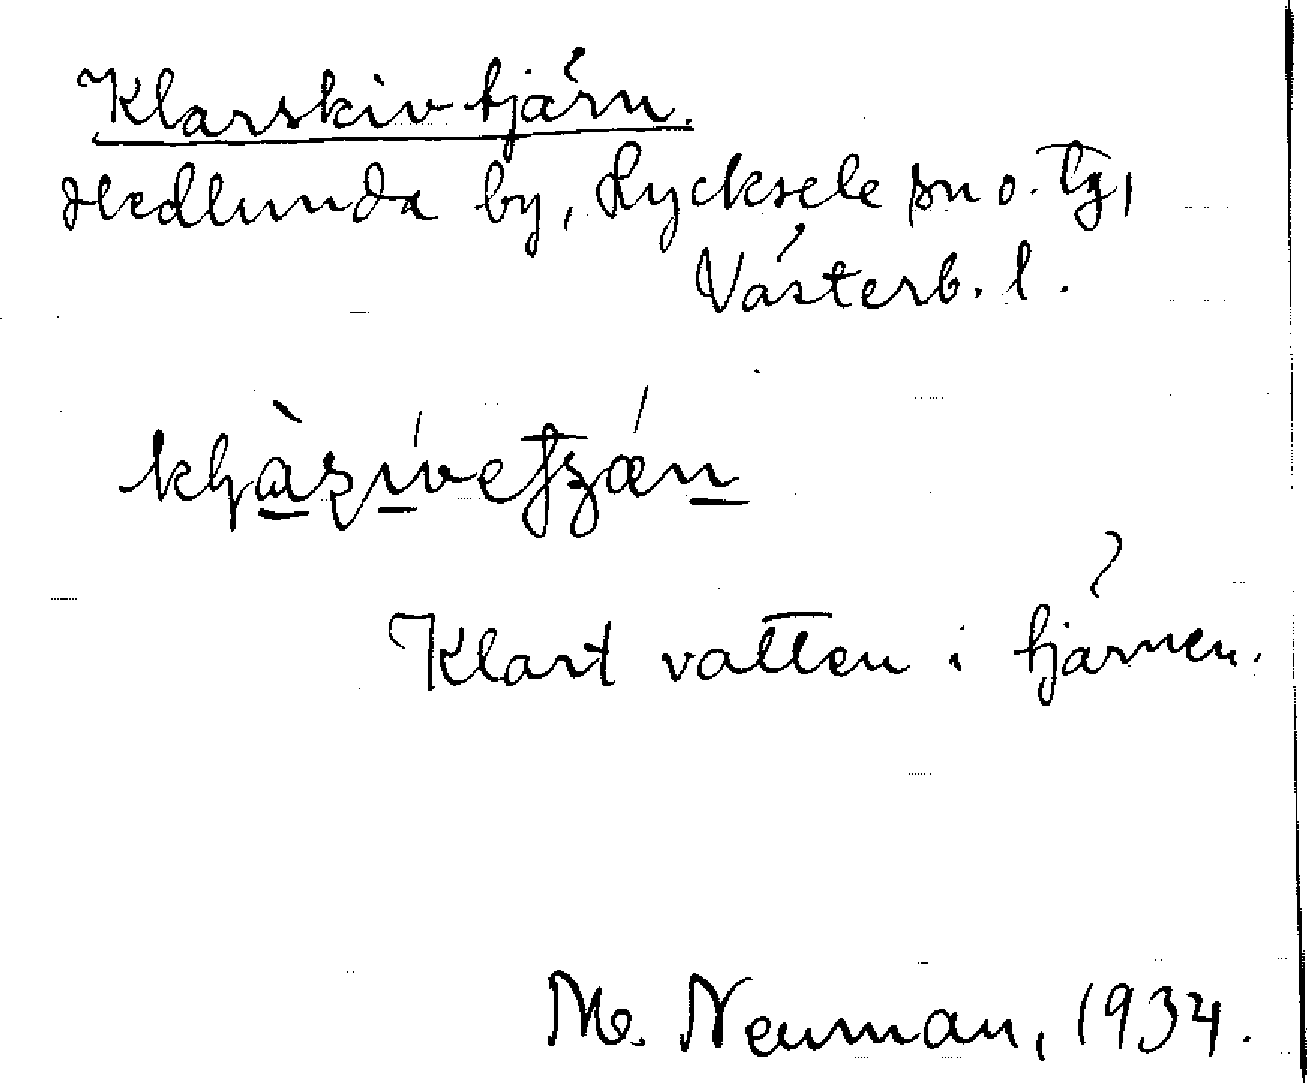 Klarskivtjärn.
Hedlunda by, Lycksele sn o. tg,
Västerb. l.
Klart vatten i tjärnen.
M. Neuman, 1934.